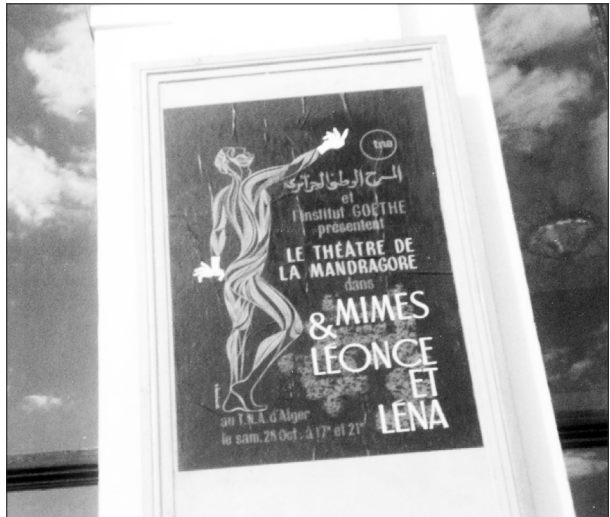 tna
المسرح الوطني الجزائري
et
l'institut GOETHE
présentent
LE THÉÂTRE DE
LA MANDRAGORE
dans
MIMES
&
LÉONCE
ET
LÉNA
au T.N.A. d'Alger
le sam. 28 Oct. à 17ʰ et 21ʰ